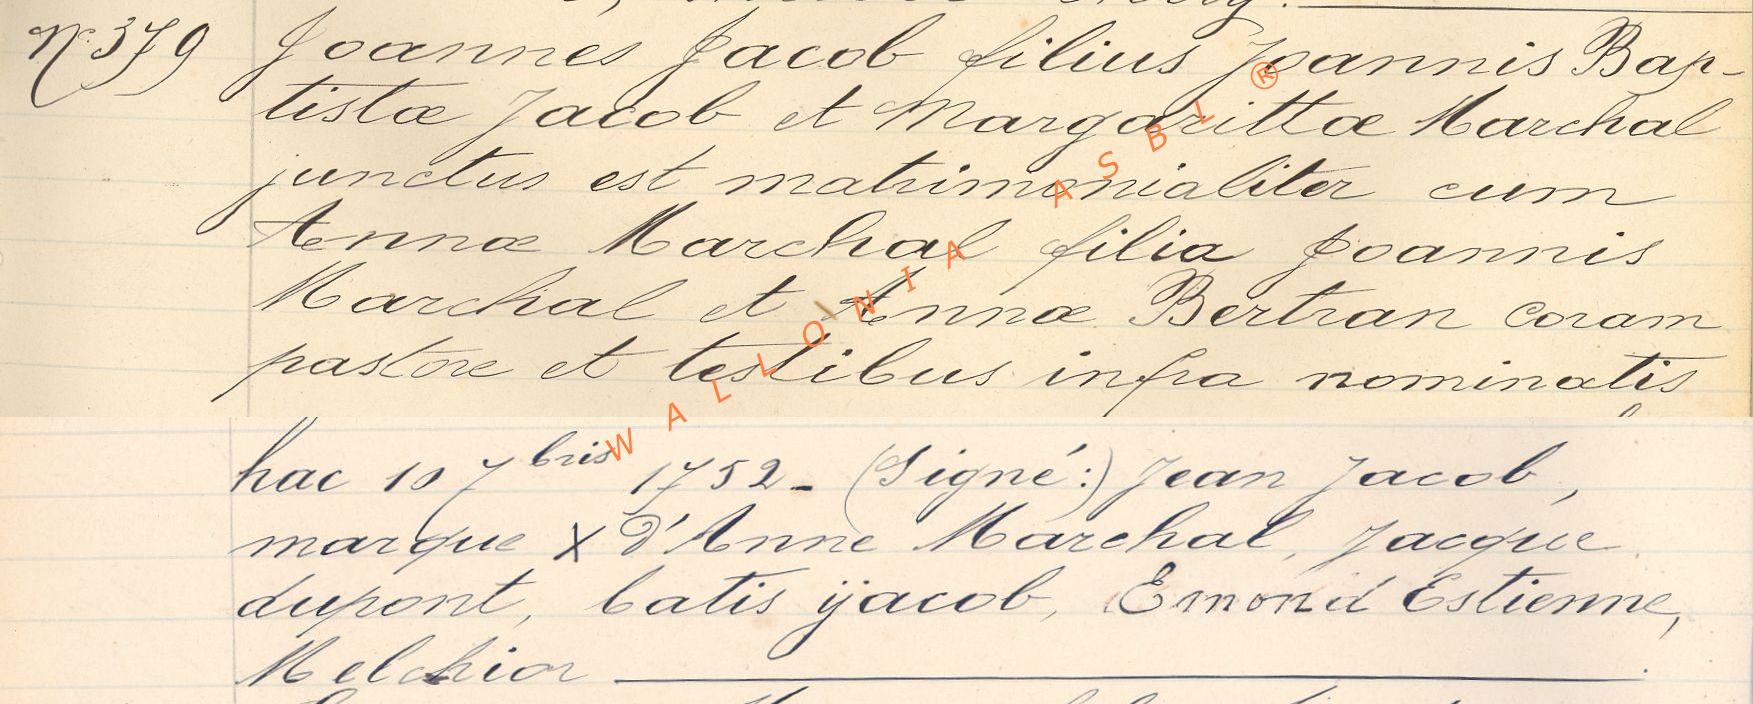 N° 379 Joannes Jacob filius Joannis Bap-
tistæ Jacob et Margarittæ Marchal
junctus est matrimonialiter cum
Annæ Marchal filia Joannis
Marchal et Annæ Bertran coram
pastore et testibus infra nominatis
hac 10 7bris 1752 - (Signé:) Jean Jacob,
marque X d'Anne Marchal, Jacque
dupont, batis ÿacob, Emond Estienne,
Melchior
WALLONIA ASBL ®